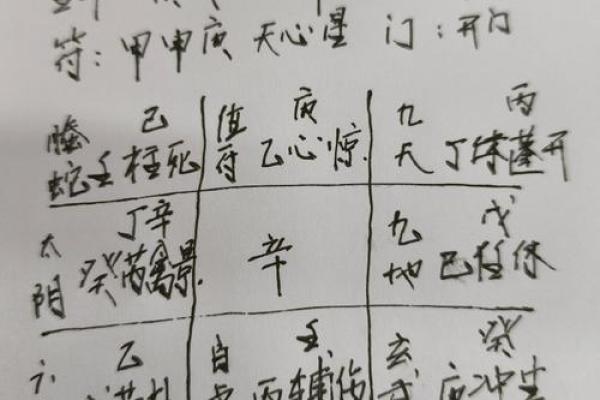 符：甲申庚 天心星 门：开门
螣 己 值 庚 九 丙
蛇 壬柱死 符 乙心惊. 天 丁蓬开
太 丁辛 九 戊
阴 癸芮禽景. 辛 地 己任休
乙 白 壬 玄 癸
丙辅伤 庚冲生